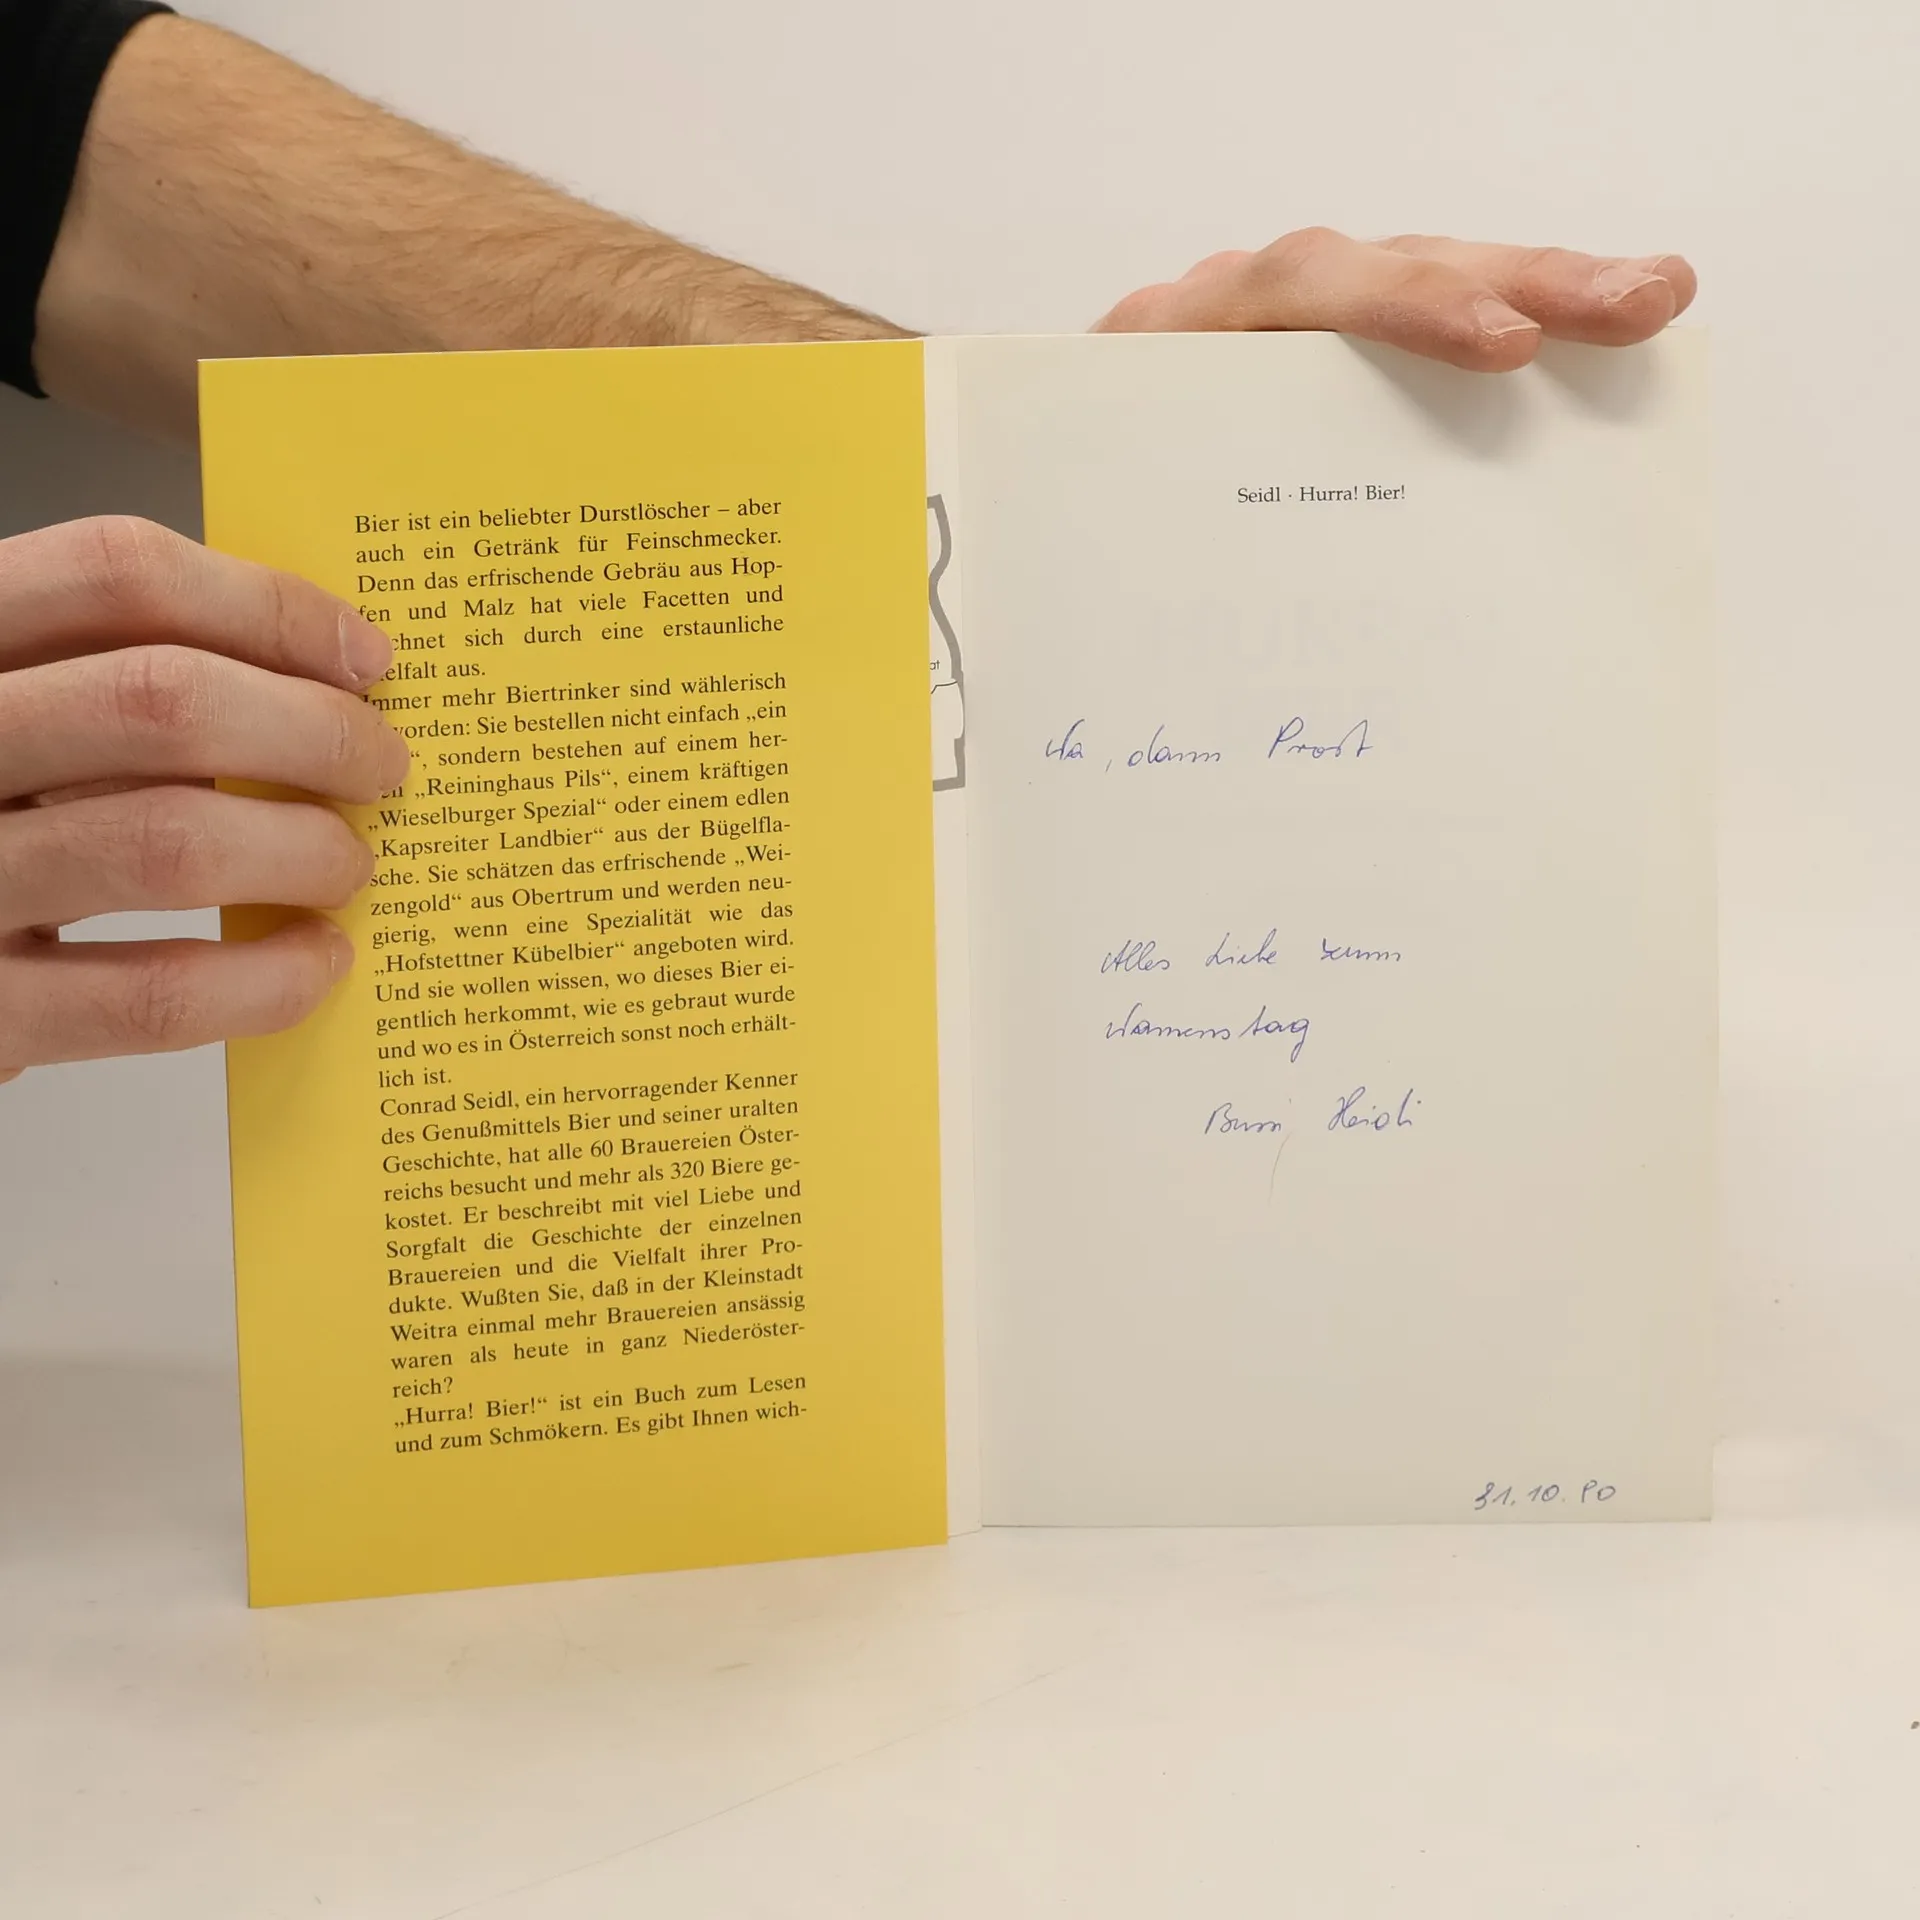 Bier ist ein beliebter Durstlöscher – aber
auch ein Getränk für Feinschmecker.
Denn das erfrischende Gebräu aus Hop-
fen und Malz hat viele Facetten und
chnet sich durch eine erstaunliche
elfalt aus.
Immer mehr Biertrinker sind wählerisch
worden: Sie bestellen nicht einfach „ein
“, sondern bestehen auf einem her-
en „Reininghaus Pils“, einem kräftigen
„Wieselburger Spezial“ oder einem edlen
„Kapsreiter Landbier“ aus der Bügelfla-
sche. Sie schätzen das erfrischende „Wei-
zengold“ aus Obertrum und werden neu-
gierig, wenn eine Spezialität wie das
„Hofstettner Kübelbier“ angeboten wird.
Und sie wollen wissen, wo dieses Bier ei-
gentlich herkommt, wie es gebraut wurde
und wo es in Österreich sonst noch erhält-
lich ist.
Conrad Seidl, ein hervorragender Kenner
des Genußmittels Bier und seiner uralten
Geschichte, hat alle 60 Brauereien Öster-
reichs besucht und mehr als 320 Biere ge-
kostet. Er beschreibt mit viel Liebe und
Sorgfalt die Geschichte der einzelnen
Brauereien und die Vielfalt ihrer Pro-
dukte. Wußten Sie, daß in der Kleinstadt
Weitra einmal mehr Brauereien ansässig
waren als heute in ganz Niederöster-
reich?
„Hurra! Bier!“ ist ein Buch zum Lesen
und zum Schmökern. Es gibt Ihnen wich-
at
Seidl · Hurra! Bier!
Na, dann Prost
Alles Liebe zum
Namenstag
Bussi Heidi
31.10.90